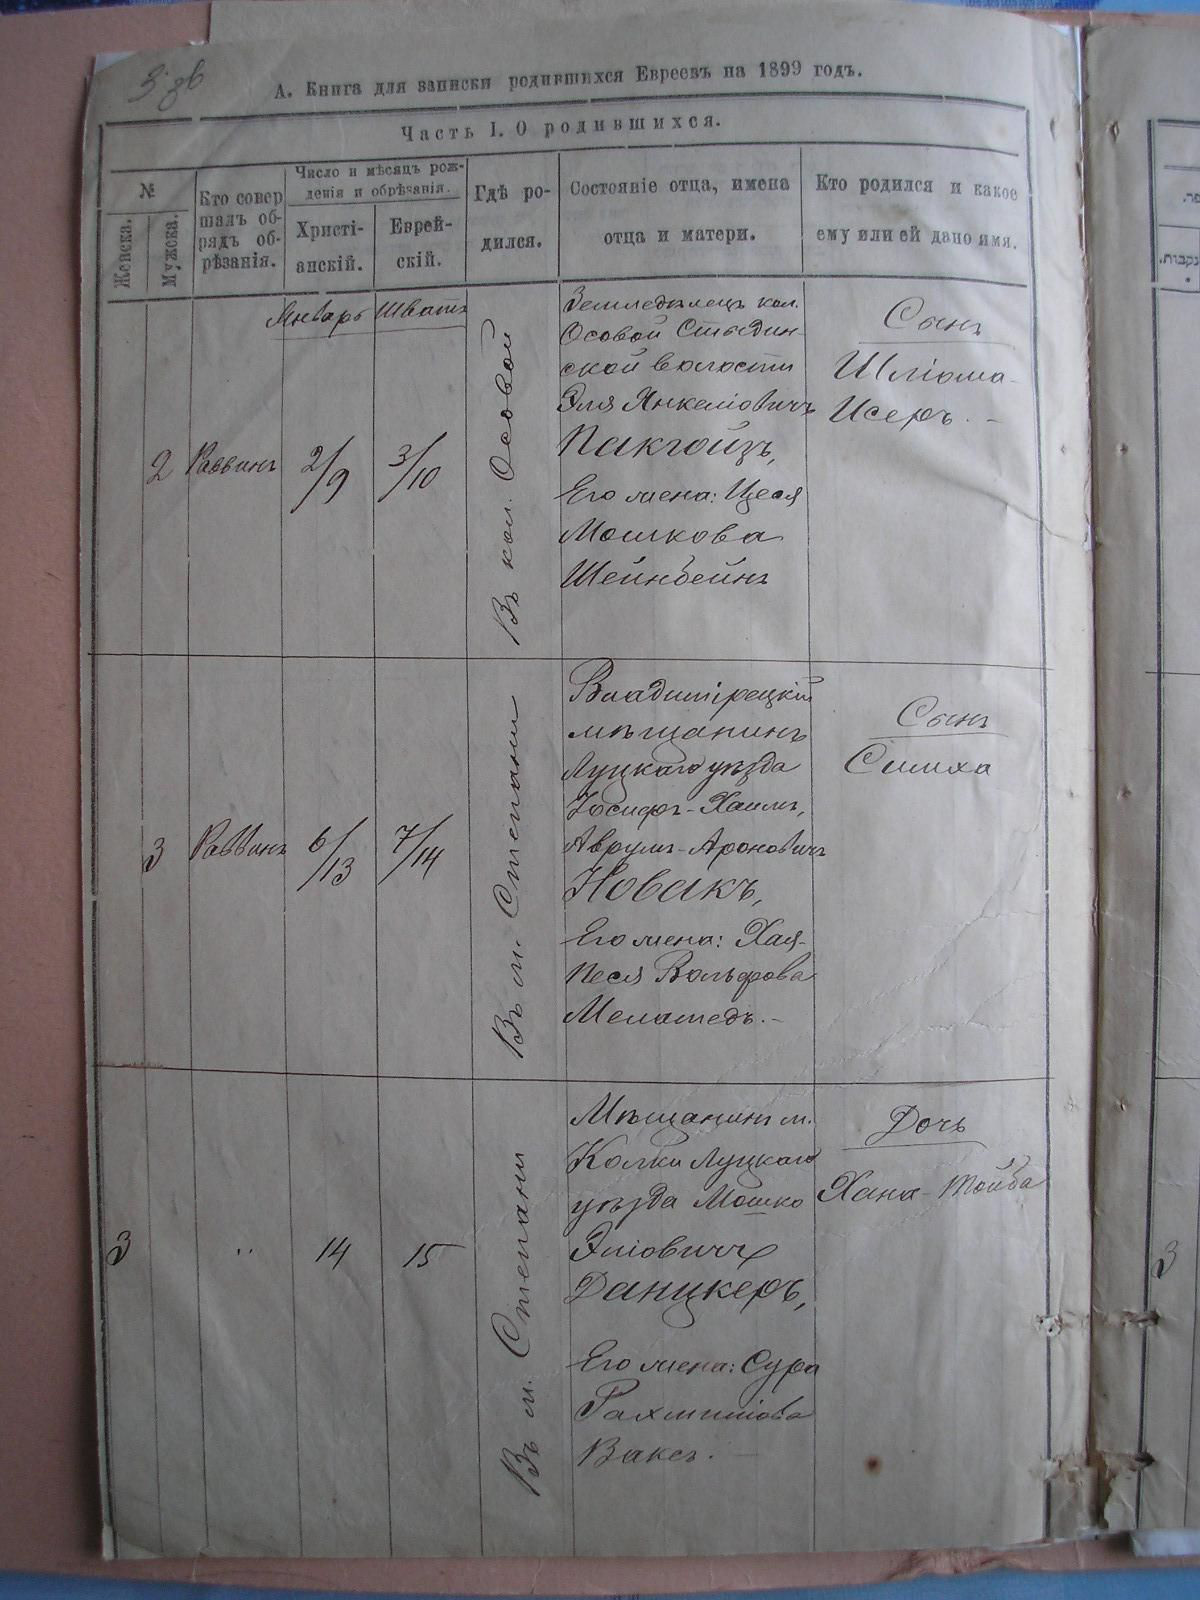 А. Книга для записки родившихся Евреевъ на 1899 годъ.
Часть I. О родившихся.
№
Женска.
Мужска.
Кто совер
шалъ об-
рядъ об-
рѣзанія.
Число и мѣсяцъ рож-
денія и обрѣзанія.
Христі-
анскій.
Еврей-
скій.
Гдѣ ро-
дился.
Состояніе отца, имена
отца и матери.
Кто родился и какое
ему или ей дано имя.
Январь
Шватъ
2
Раввинъ
2/9
3/10
Въ кол. Осовой
Земледѣлецъ кол.
Осовой Стыдин-
ской волости
Эля Янкеліовичъ
Пакгойзъ,
Его жена: Цеся
Мошкова
Шейнбейнъ
Сынъ
Шліома-
Исеръ. -
3
Раввинъ
6/13
7/14
Въ м. Степани
Владимірецкій
мѣщанинъ
Луцкаго уѣзда
Іосифъ-Хаимъ,
Аврумъ-Ароновичъ
Новакъ,
Его жена: Хая-
Песя Вольфова
Меламедъ. -
Сынъ
Симха
3
..
14
15
Въ м. Степани
Мѣщанинъ м.
Колки Луцкаго
уѣзда Мошко
Эліовичъ
Данцкеръ,
Его жена: Сура
Рахмиліова
Ваксъ. -
Дочь
Хана-Тойба
3